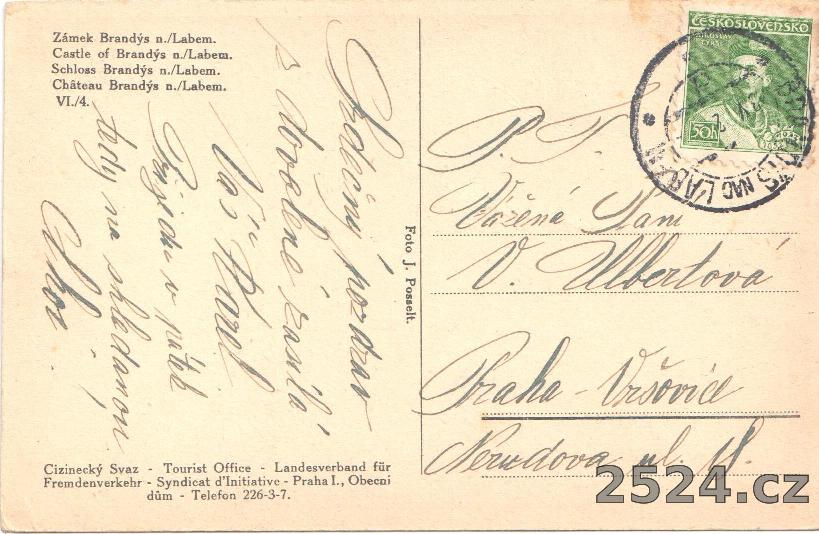 Zámek Brandýs n./Labem.
Castle of Brandýs n./Labem.
Schloss Brandýs n./Labem.
Château Brandýs n./Labem.
VI./4.
Srdečný pozdrav
s dovolené zasílá
Váš Karel
Přijedu v pátek
tedy na shledanou
Foto J. Posselt.
ČESKOSLOVENSKO
MIROSLAV
TYRŠ
50h
NAD LAB
P. T.
Vážená Paní
V. Ulbertová
Praha - Vršovice
Nerudova ul.
Cizinecký Svaz - Tourist Office - Landesverband für
Fremdenverkehr - Syndicat d'Initiative - Praha I., Obecní
dům - Telefon 226-3-7.
2524.cz